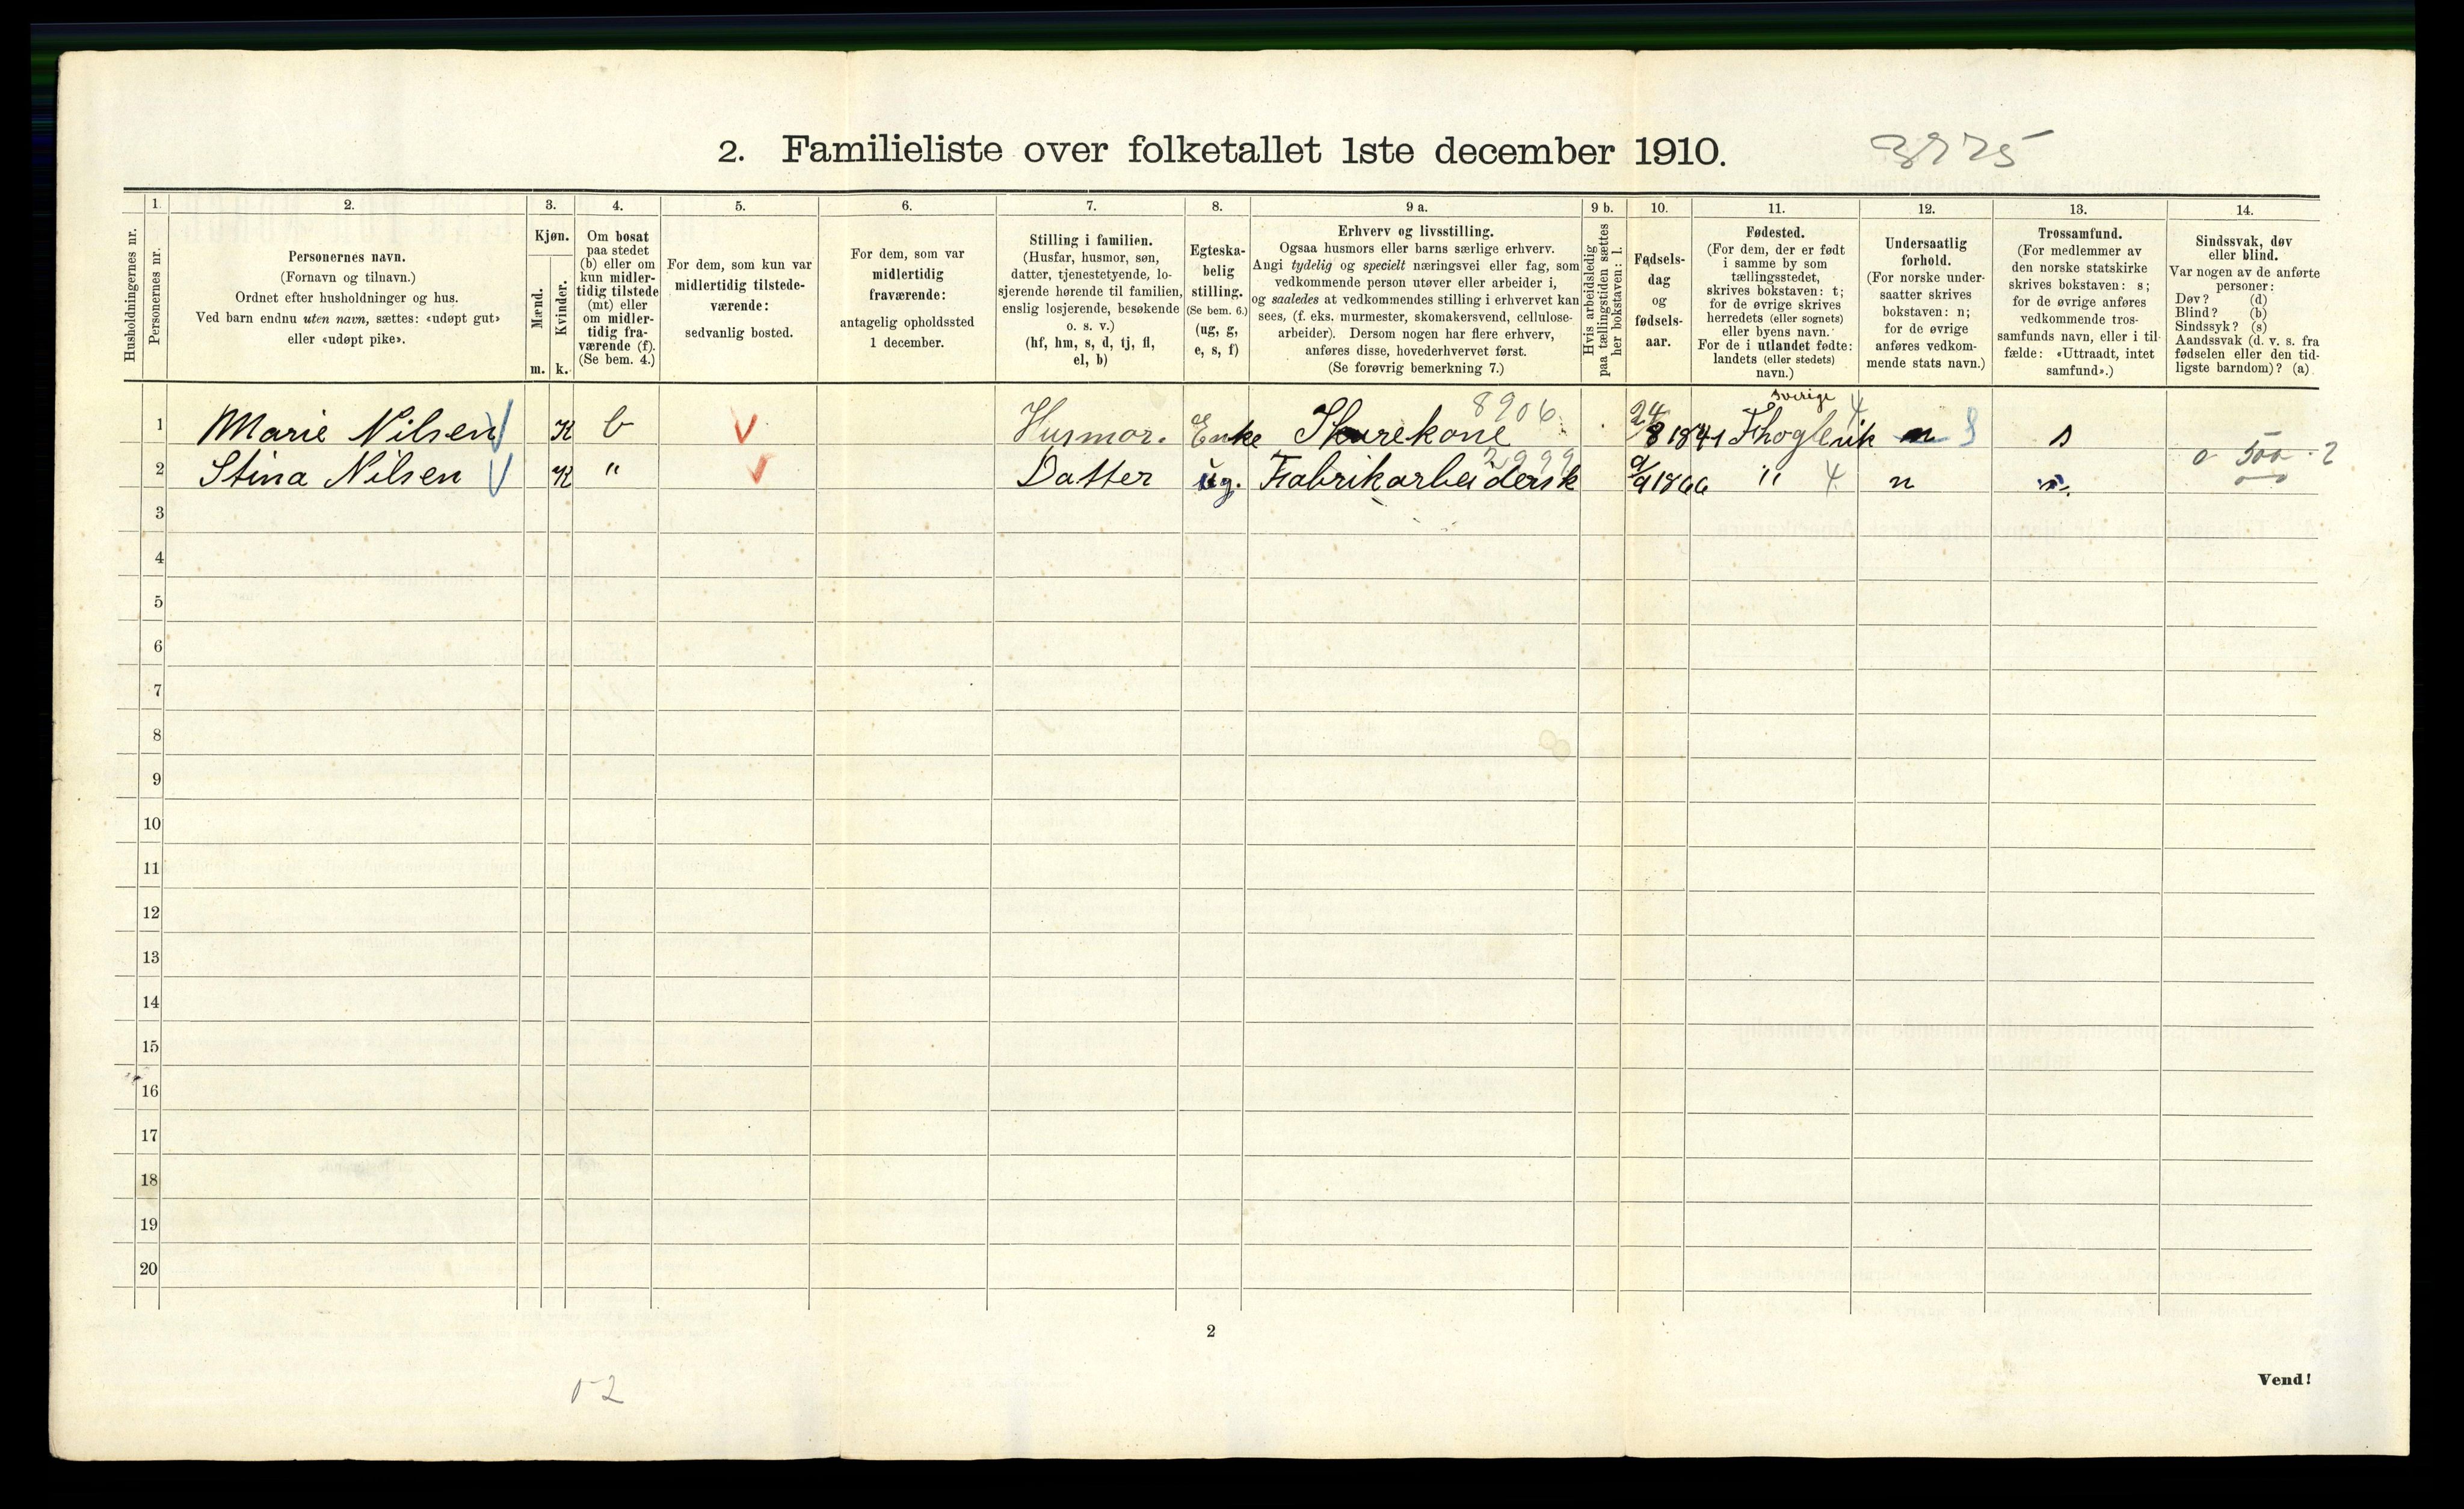 2. Familieliste over folketallet 1ste december 1910.
Husholdningernes nr.
1.
Personernes nr.
2.
Personernes navn.
(Fornavn og tilnavn.)
Ordnet efter husholdninger og hus.
Ved barn endnu uten navn, sættes: «udøpt gut»
eller «udøpt pike».
3.
Kjøn.
Mænd.
Kvinder.
m. k.
4.
Om bosat
paa stedet
(b) eller om
kun midler-
tidig tilstede
(mt) eller
om midler-
tidig fra-
værende (f).
(Se bem. 4.)
5.
For dem, som kun var
midlertidig tilstede-
værende:
sedvanlig bosted.
6.
For dem, som var
midlertidig
fraværende:
antagelig opholdssted
1 december.
7.
Stilling i familien.
(Husfar, husmor, søn,
datter, tjenestetyende, lo-
sjerende hørende til familien,
enslig losjerende, besøkende
o. s. v.)
(hf, hm, s, d, tj, fl,
el, b)
8.
Egteska-
belig
stilling.
(Se bem. 6.)
(ug, g,
e, s, f)
9 a.
Erhverv og livsstilling.
Ogsaa husmors eller barns særlige erhverv.
Angi tydelig og specielt næringsvei eller fag, som
vedkommende person utøver eller arbeider i,
og saaledes at vedkommendes stilling i erhvervet kan
sees, (f. eks. murmester, skomakersvend, cellulose-
arbeider). Dersom nogen har flere erhverv,
anføres disse, hovederhvervet først.
(Se forøvrig bemerkning 7.)
9 b.
Hvis arbeidsledig
paa tællingstiden sættes
her bokstaven: l.
10.
Fødsels-
dag
og
fødsels-
aar.
11.
Fødested.
(For dem, der er født
i samme by som
tællingsstedet,
skrives bokstaven: t;
for de øvrige skrives
herredets (eller sognets)
eller byens navn.
For de i utlandet fødte:
landets (eller stedets)
navn.)
12.
Undersaatlig
forhold.
(For norske under-
saatter skrives
bokstaven: n;
for de øvrige
anføres vedkom-
mende stats navn.)
13.
Trossamfund.
(For medlemmer av
den norske statskirke
skrives bokstaven: s;
for de øvrige anføres
vedkommende tros-
samfunds navn, eller i til-
fælde: «Uttraadt, intet
samfund».)
14.
Sindssvak, døv
eller blind.
Var nogen av de anførte
personer:
Døv? (d)
Blind? (b)
Sindssyk? (s)
Aandssvak (d. v. s. fra
fødselen eller den tid-
ligste barndom)? (a)
8906
Sverige 4
1 Marie Nilsen K b Husmor. Enke Skurekone 24/8 1841 n S s
2999
0 500 · 2
2 Stina Nilsen K " Datter ug. Fabrikarbeidersk 9/9 1866 " 4 n
3
4
5
6
7
8
9
10
11
12
13
14
15
16
17
18
19
20
2
Vend!